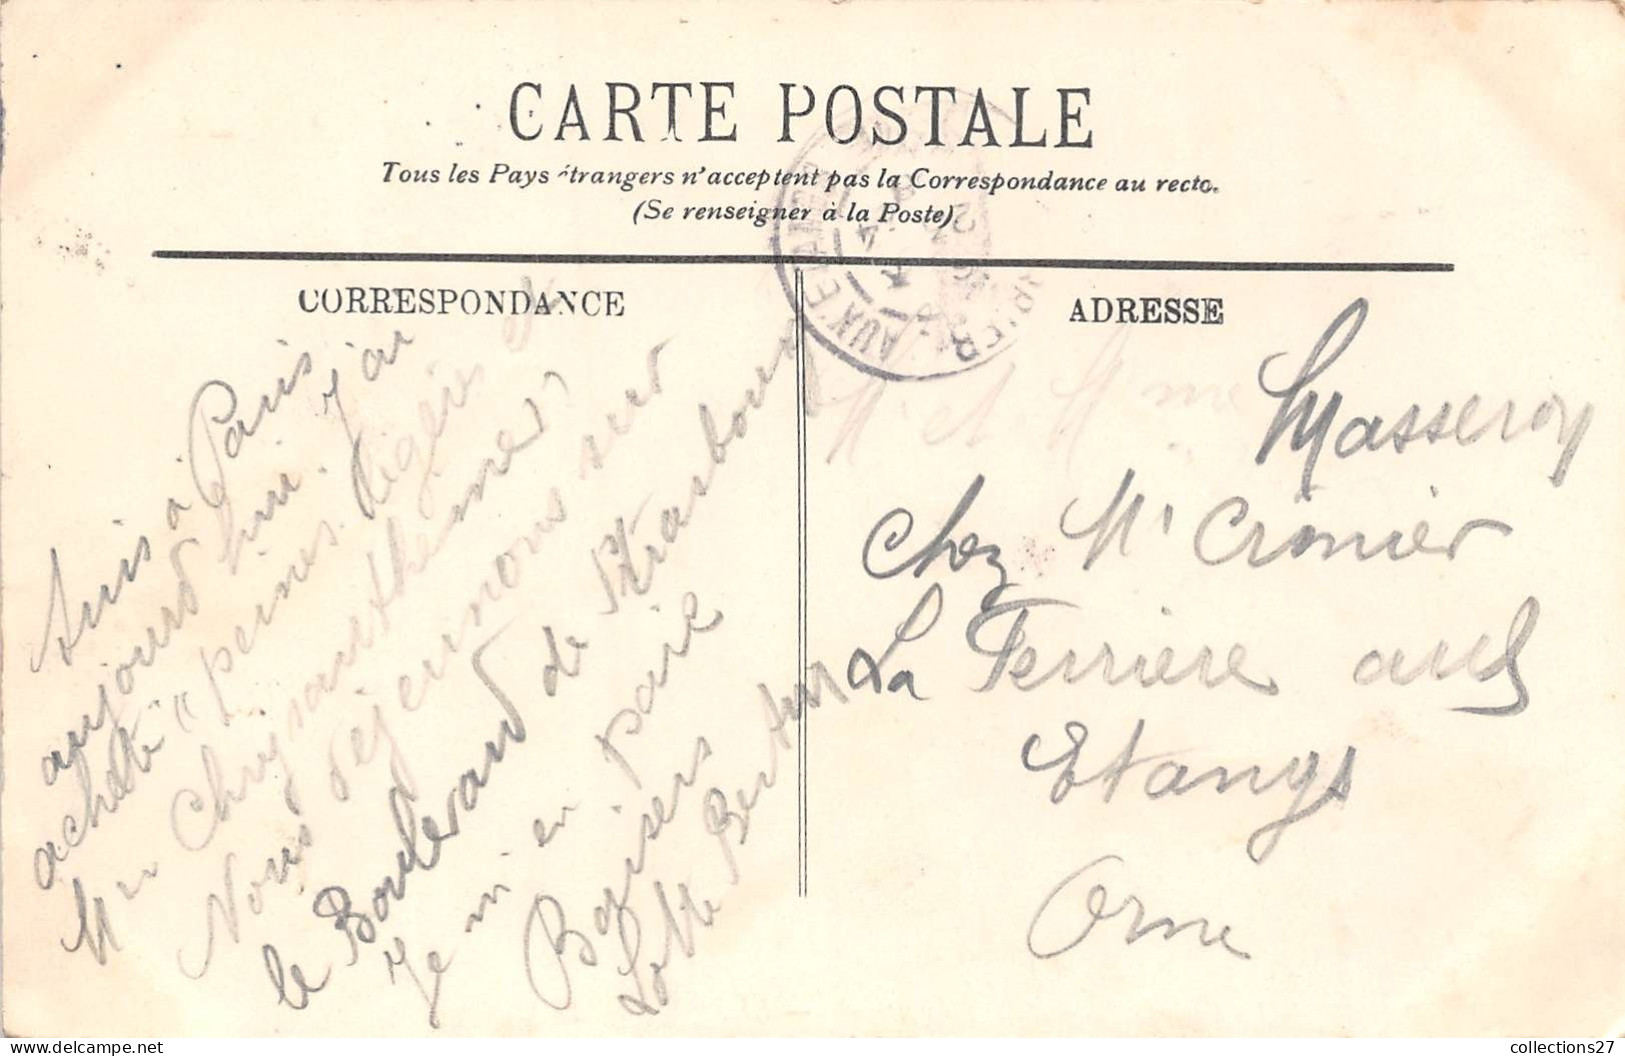 CARTE POSTALE
Tous les Pays étrangers n'acceptent pas la Correspondance au recto.
(Se renseigner à la Poste)
CORRESPONDANCE
Suis à Paris
aujourd'hui. j'ai
acheté "
Mn Chrysanthème"
Nous déjeunons sur
le Boulevard de Strasbourg
Je mi en paie
Baisers
Lotte
ADRESSE
Mr et Mme
Masseron
chez Mr Cronier
La Ferriere aux
Etangs
Orne
AUX ETANGS
collections27